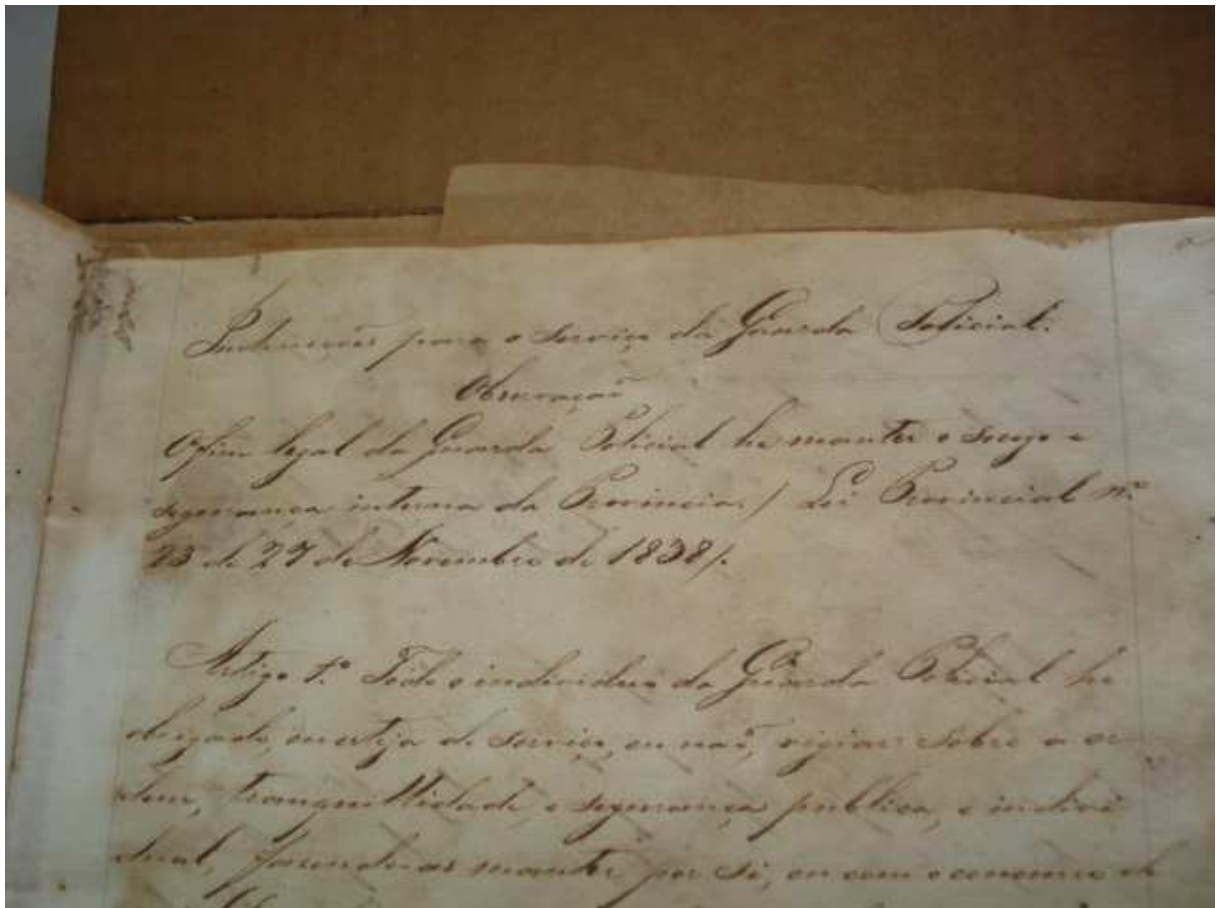 Instrucções para o serviço da Guarda Policial.
Observação
O fim legal da Guarda Policial he manter o socego e
segurança interna da Provincia / Lei Provincial nº
23 de 27 de Novembro de 1838/.
Artigo 1º Todo o individuo da Guarda Policial he
obrigado, ou esteja de serviço, ou não, vigiar sobre a or-
dem, tranquillidade, e segurança publica, e indivi
dual, fazendo-as manter por si, ou com o concurso de